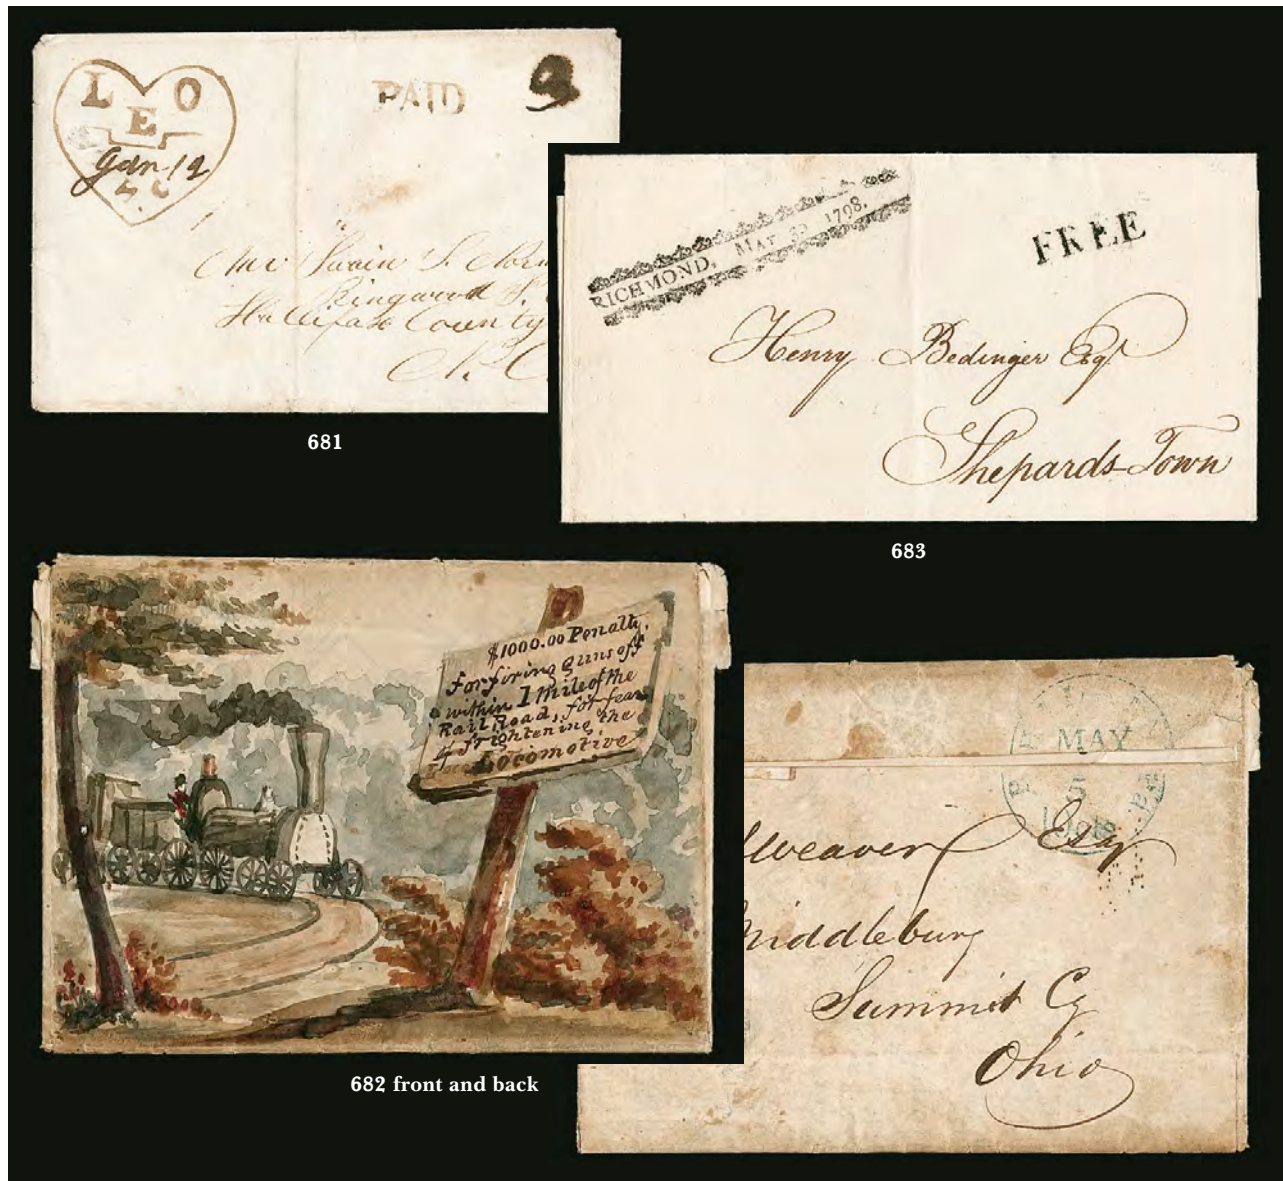 L E O
Jan 12
PAID
Mr Swain S.
Ringwood
Hallifax County
N. C
681
RICHMOND, MAR 1798.
FREE
Henry Bedinger Esqr
Shepards-Town
683
$1000.00 Penalty.
For firing guns off
within 1 mile of the
Rail Road, for fear
of frightening the
Locomotive
682 front and back
MAY
5
10cts
Weaver Esq
Middlebury
Summit Cy
Ohio